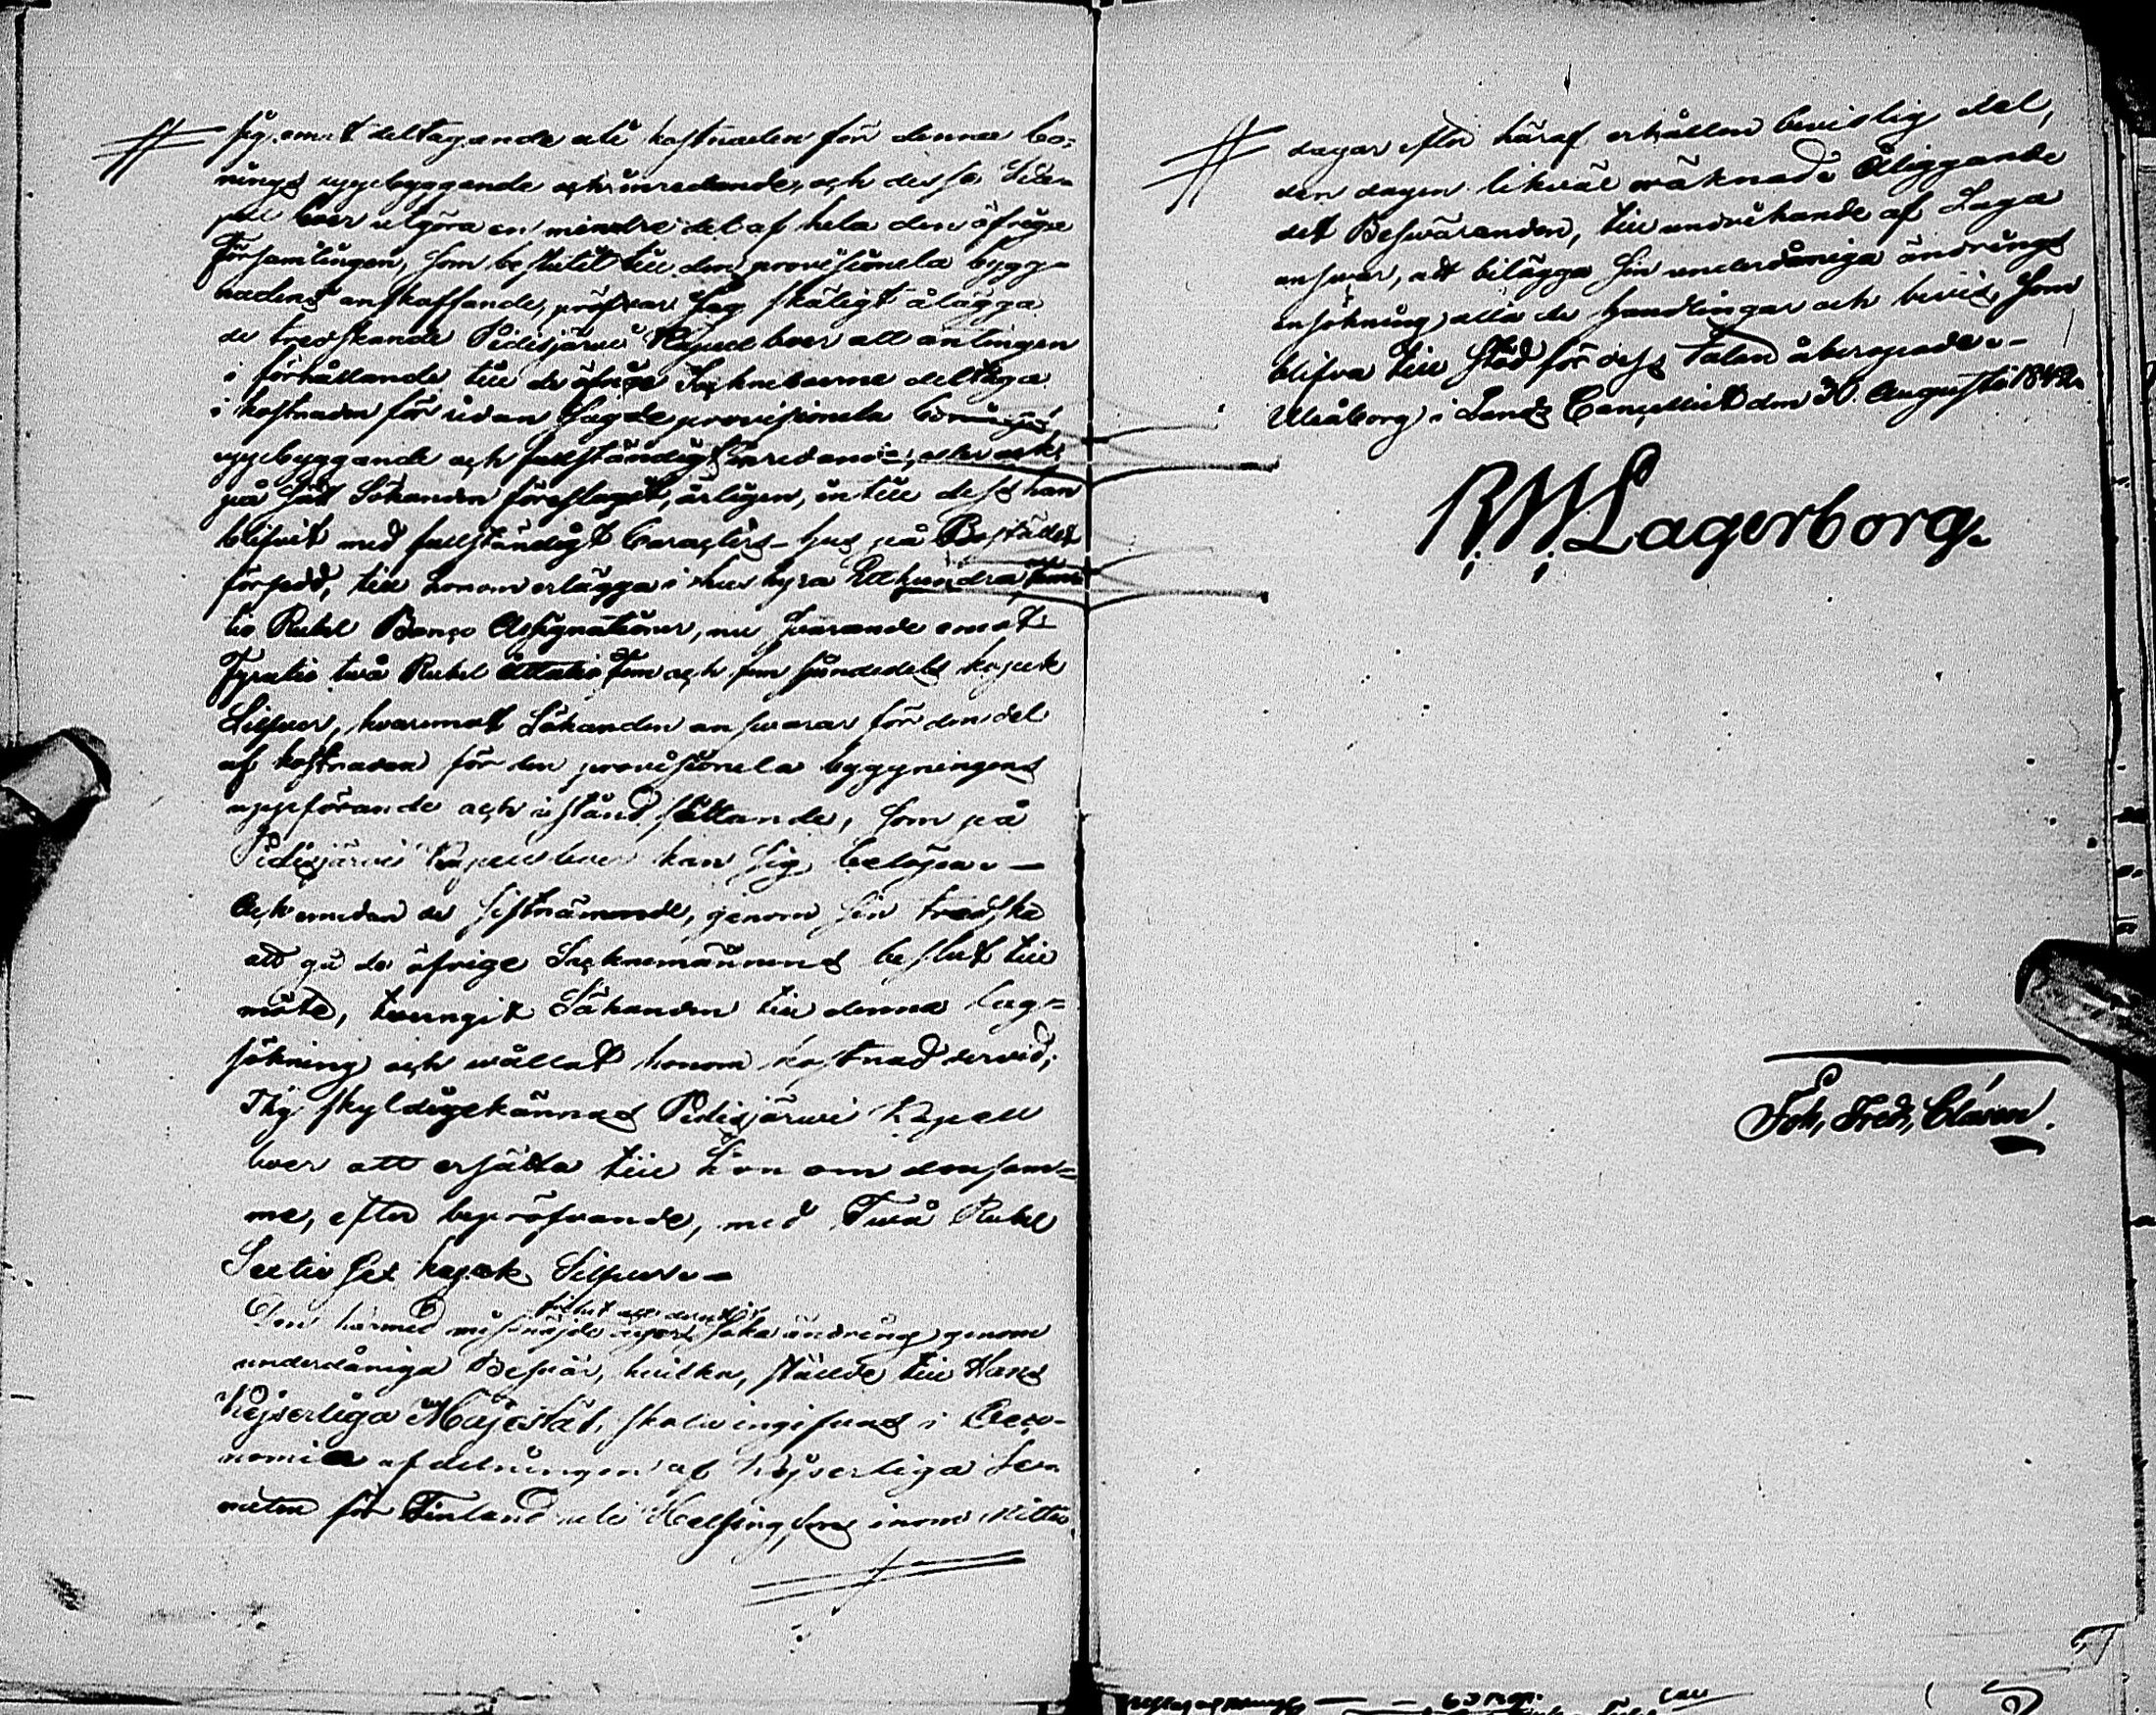 sig emot deltagande uti kostnaden för denna bo-
nings uppbyggande och inredande, och desse
boer utgöra en mindre del af hela den öfriga
Församlingen, som beslutit till den provisionela bygg-
nadens anskaffande, pröfvar Jag skäligt ålägga
de tredskande Pidisjärvi Kapellboer att antingen
i förhållande till de öfrige Sockneboerne deltaga
i kostnaden för sådan sagde provisionela bonings
uppbyggande och fullständigt inredande, eller ock
på sätt Sökanden föreslagit, årligen, in till dess han
blifvit med fullständigt Caracters-hus på Bostället
försedd, till honom erlägga i hushyra Etthundra fem-
tio Rubel Banco Assignationer, nu svarande emot
Fyratio två Rubel Åttatio fem och fem sjundedels kopek
Silfver, hvaremot Sökanden ansvarar för den del
af kostnaden för den provisionela byggningens
uppförande och istånd sättande, som på
Pidisjärvi Kapellboer kan sig belöpa. —
Och emedan de sistnämnde, genom sin tredska
att gå de öfrige Socknemännens beslut till
möte, tvungit Sökanden till denna lag-
sökning och wållat honom kostnad dervid;
Thy skyldigekännas Pidisjärwi Kapell
boer att ersätta till honom densam-
me, efter bepröfvande, med Twå Rubel
Sextio sex kopek Silfver. —
Den härmed missnöjde äger söka ändring genom
underdåniga Besvär, hvilka, stälde till Hans
Kejserliga Majestät, skola ingifvas i Oeco-
nomie afdelningen af Kejserliga Se-
naten för Finland uti Helsingfors inom Nittio
dagar efter häraf erhållen bevislig del,
den dagen likväl oräknad: Åliggande
det Besvāranden, till undvikande af Laga
ansvar, att bilägga sin underdåniga ändrings
ansökning alla de handlingar och bevis, som
blifva till stöd för dess talan åberopade. —
Uleåborg i Lands Cancelliet den 30 Augusti 1842.
RW Lagerborg.
Joh. Fredr. Claven.